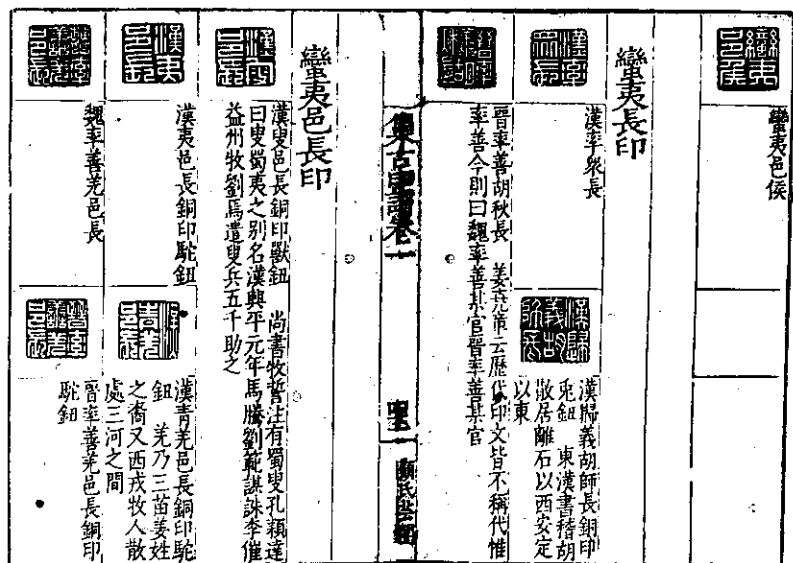 蠻夷邑侯
蠻夷邑侯
蠻夷長印
漢率衆長
漢率衆長
漢歸義胡師長銅印
兎鈕　東漢書稽胡
散居離石以西安定
以東
晉率善胡秋長　姜堯章云歷代印文皆不稱代惟
率善今則曰魏率善某官晉率善某官
顧氏芸閣
蠻夷邑長印
漢叟邑長
漢叟邑長銅印獸鈕　尚書牧誓注有蜀叟孔穎達
曰叟蜀夷之别名漢興平元年馬騰劉範謀誅李傕
益州牧劉焉遣叟兵五千助之
漢夷邑長
漢夷邑長銅印駝鈕
漢青羌邑長
漢青羌邑長銅印駝
鈕　羌乃三苗姜姓
之裔又西戎牧人散
處三河之間
魏率善羌邑長
魏率善羌邑長
晉率善羌邑長
晉率善羌邑長銅印
駝鈕